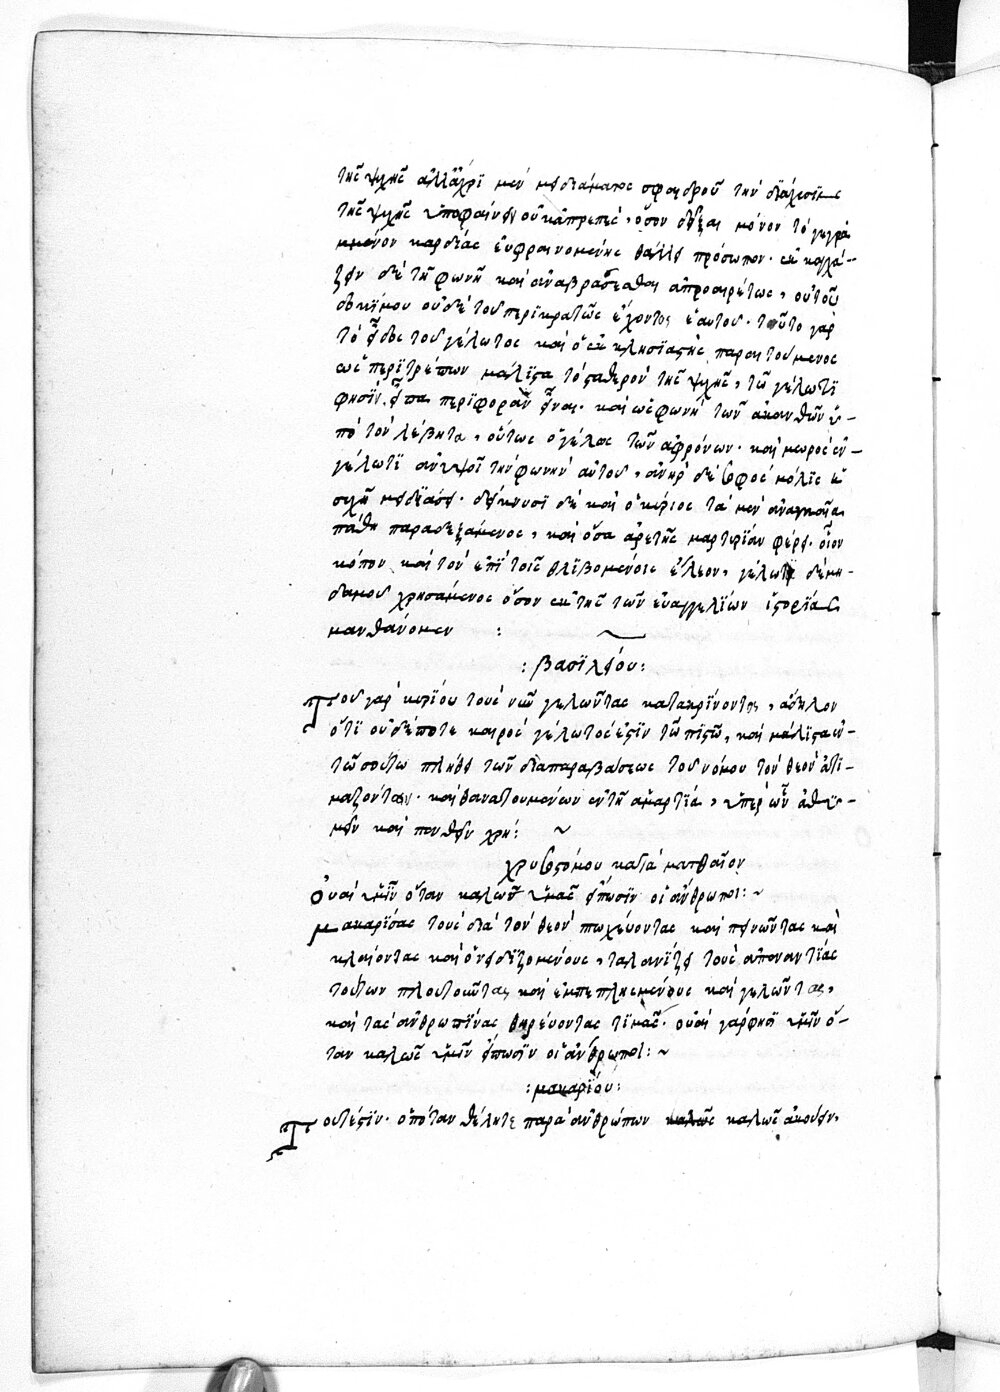 τῆς ψυχῆς ἀλλἄχρϊ μεν μειδιάματος σφαιδροῦ τὴν διάχυσϊν
τῆς ψυχῆς ὑποφαίνειν οὐκ ἀπρεπὲς, ὅσον δεῖξαι μόνον τὸ γεγρα
μμένον καρδίας εὐφραινομένης θάλλει πρόσωπον. ἐκκαγχά-
ζειν δὲ τῆ φωνῆ καὶ ἀναβράσσεσθαι ἀπροαιρέτως, οὐ τοῦ
δοκίμου οὐδὲ τοῦ περικρατῶς ἔχοντος ἑαυτοῦ. τοῦτο γὰρ
τὸ εἶδος τοῦ γέλωτος καὶ ὁ ἐκκλησϊαστὴς παραιτούμενος
ὡς περϊτρέπων μάλϊστα τὸ σταθερὸν τῆς ψυχῆς, τῶ γέλωτϊ
φησϊν εἶπα περϊφορὰν εἶναι. καὶ ὡς φωνὴ τῶν ἀκανθῶν ὑ-
πὸ τὸν λέβητα, οὕτως ὁ γέλως τῶν ἀφρόνων. καὶ μωρὸς ἐν
γέλωτϊ ἀνυψοῖ τὴν φωνὴν αὐτοῦ, ἀνὴρ δὲ σοφὸς μόλϊς ἡ
συχῆ μειδϊάσει. δείκνυσϊ δὲ καὶ ὁ κύριος τὰ μὲν ἀναγκαῖα
πάθη παραδεξάμενος, καὶ ὅσα ἀρετῆς μαρτυρίαν φέρει. οἷον
κόπον καὶ τὸν ἐπὶ τοῖς θλϊβομένοις ἔλεον, γέλωτϊ δὲ μη-
δαμοῦ χρησάμενος ὅσον ἐκ τῆς τῶν εὐαγγελίων ἱστορίας
μανθάνομεν :
: βασϊλείου :
Τοῦ γὰρ κυρίου τοὺς νῦν γελῶντας κατακρίνοντος, ἄδηλον
ὅτϊ οὐδέποτε καιρὸς γέλωτος ἐστϊν τῶ πϊστῶ, καὶ μάλϊστα ἐν
τῶσούτω πλήθει τῶν διαπαραβάσεως τοῦ νόμου τὸν θεὸν ἀτϊ-
μαζόντων. καὶ θανατουμένων ἐν τῆ ἁμαρτία, ὑπὲρ ὧν ἀθϋ-
μεῖν καὶ πενθεῖν χρή :
χρυσοστόμου κατὰ ματθαῖον
Οὐαὶ ὑμῖν ὅταν καλῶς ὑμᾶς εἴπωσϊν οἱ ἄνθρωποι : ~
μακαρίσας τοὺς διὰ τὸν θεὸν πτωχεύοντας καὶ πεινῶντας καὶ
κλαίοντας καὶ ὀνειδϊζομένους, ταλανίζει τοὺς ἀπεναντίας
τούτων πλουτοῦντας καὶ ἐμπεπλησμένους καὶ γελῶντας,
καὶ τὰς ἀνθρωπϊνας θηρεύοντας τϊμάς. οὐαὶ γάρ φησϊ ὑμῖν ὅ-
ταν καλῶς ὑμῖν εἴπωσϊν οἱ ἄνθρωποι : ~
: μακαρϊου :
Τουτέστϊν. ὁπόταν θέλητε παρὰ ἀνθρώπων καλῶς καλῶς ἀκούειν,